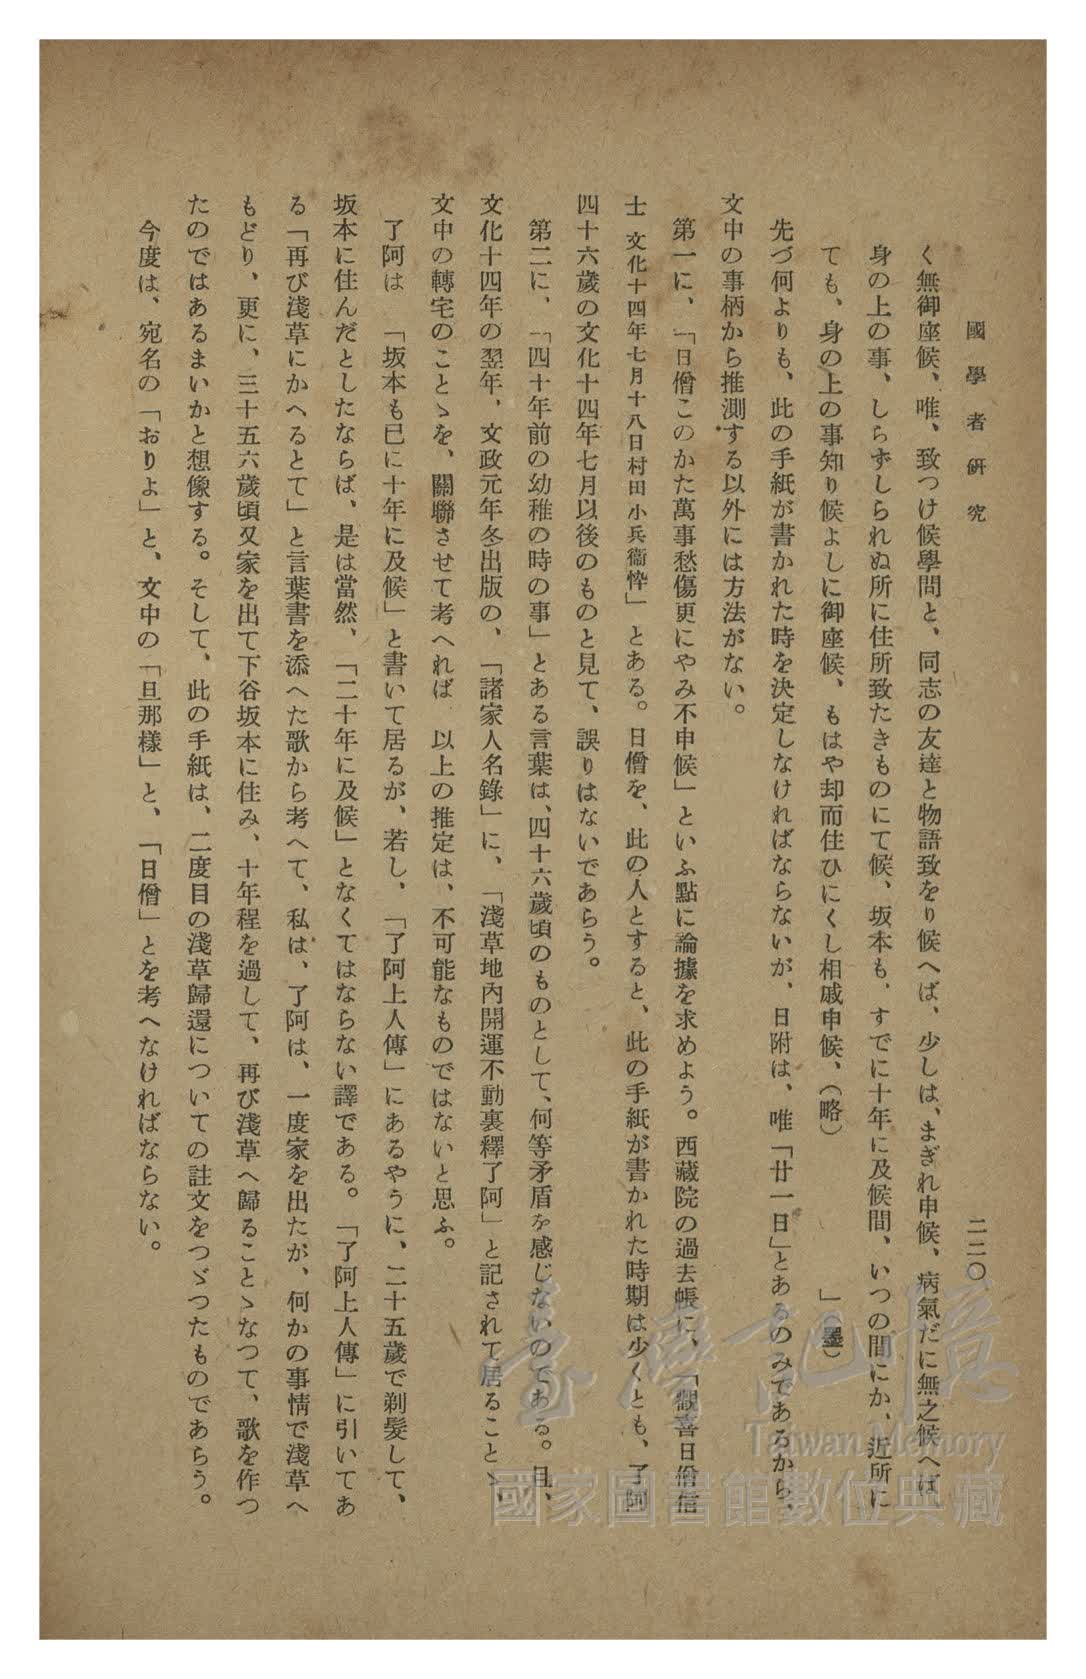 國學者研究
二二〇
く無御座候、唯、致つけ候學問と、同志の友達と物語致をり候へば、少しは、まぎれ申候、病氣だに無之候へは
身の上の事、しらずしられぬ所に住所致たきものにて候、坂本も、すでに十年に及候間、いつの間にか、近所に
ても、身の上の事知り候よしに御座候、もはや却而住ひにくし相成申候、(略)
先づ何よりも、此の手紙が書かれた時を決定しなければならないが、日附は、唯「廿一日」とあるのみであるから、
文中の事柄から推測する以外には方法がない。
第一に、「日僧このかた萬事愁傷更にやみ不申候」といふ點に論據を求めよう。西藏院の過去帳に、「觀喜日僧信
士 文化十四年七月十八日村田小兵衞悴」とある。日僧を、此の人とすると、此の手紙が書かれた時期は少くとも、了阿
四十六歲の文化十四年七月以後のものと見て、誤りはないであらう。
第二に、「四十年前の幼稚の時の事」とある言葉は、四十六歲頃のものとして、何等矛盾を感じないのである。且、
文化十四年の翌年、文政元年冬出版の、「諸家人名錄」に、「淺草地內開運不動裏釋了阿」と記されて居ることゝ、
文中の轉宅のことゝを、關聯させて考へれば 以上の推定は、不可能なものではないと思ふ。
了阿は 「坂本も已に十年に及候」と書いて居るが、若し、「了阿上人傳」にあるやうに、二十五歲で剃髮して、
坂本に住んだとしたならば、是は當然、「二十年に及候」となくてはならない譯である。「了阿上人傳」に引いてあ
る「再び淺草にかへるとて」と言葉書を添へた歌から考へて、私は、了阿は、一度家を出たが、何かの事情で淺草へ
もどり、更に、三十五六歲頃又家を出て下谷坂本に住み、十年程を過して、再び淺草へ歸ることゝなつて、歌を作つ
たのではあるまいかと想像する。そして、此の手紙は、二度目の淺草歸還についての註文をつゞつたものであらう。
今度は、宛名の「おりよ」と、文中の「旦那樣」と、「日僧」とを考へなければならない。
臺灣記憶
Taiwan Memory
國家圖書館數位典藏